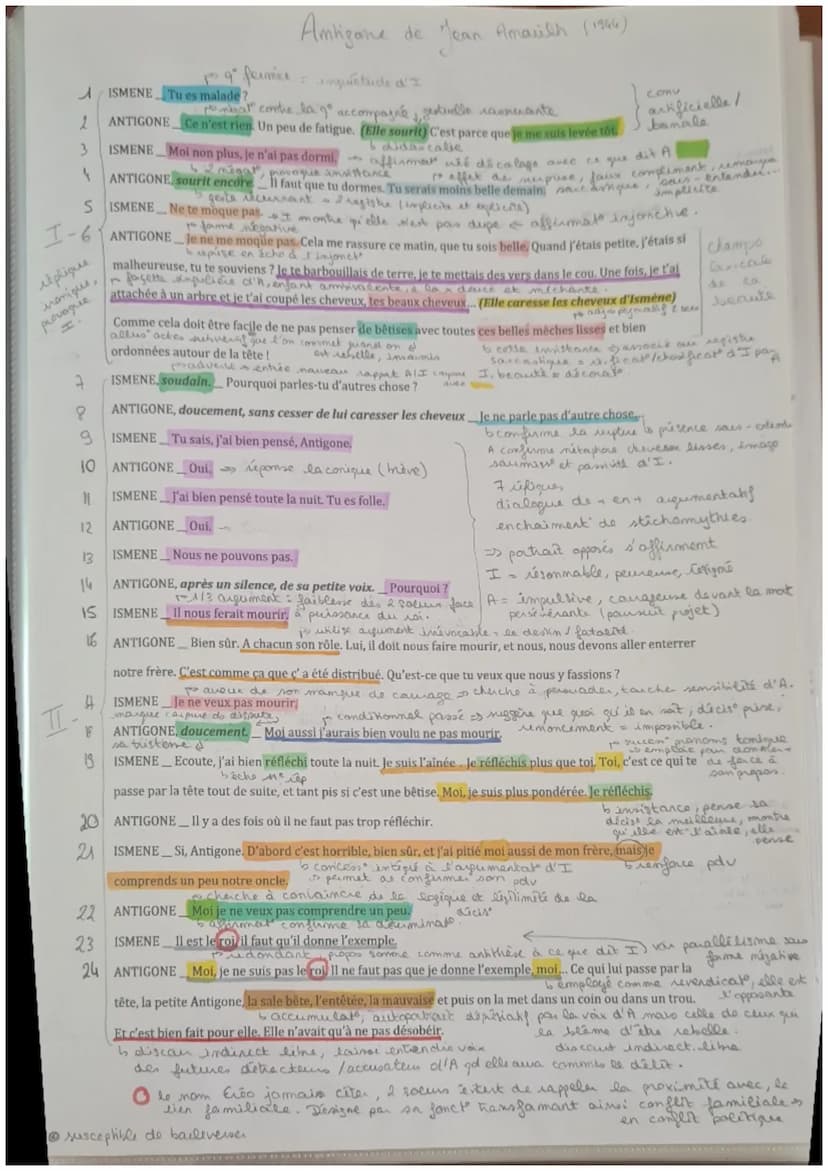 Antigone de Jean Anouilh (1944)
↱ q° fermée = inquiétude d'I
1 ISMENE _ Tu es malade ?
conv artificielle / banale
↱ négat° contre la q° accompagnée, gestuelle rassurante
2 ANTIGONE _ Ce n'est rien. Un peu de fatigue. (Elle sourit) C'est parce que je me suis levée tôt.
↳ didascalie
3 ISMENE _ Moi non plus, je n'ai pas dormi. → affirmat° décalage avec ce que dit A
↳ 2 négat°, provoque insistance ↱ effet de surprise, faux compliment, remarque
4 ANTIGONE, sourit encore _ Il faut que tu dormes. Tu serais moins belle demain. sarcastique, sous-entendu... implicite
↳ geste récurrent = 2 registre (implicite et explicite)
5 ISMENE _ Ne te moque pas. → I montre qu'elle n'est pas dupe + affirmat° injonctive.
↱ forme négative
I - 6 ANTIGONE _ Je ne me moque pas. Cela me rassure ce matin, que tu sois belle. Quand j'étais petite, j'étais si
↳ reprise en écho à l'injonct°
malheureuse, tu te souviens ? Je te barbouillais de terre, je te mettais des vers dans le cou. Une fois, je t'ai
réplique ironique, provoque I.
↱ facette d'A, enfant ambivalente, à la x douce et méchante.
attachée à un arbre et je t'ai coupé les cheveux, tes beaux cheveux... (Elle caresse les cheveux d'Ismène)
champs lexicale de la beauté
Comme cela doit être facile de ne pas penser de bêtises avec toutes ces belles mèches lisses et bien
que l'on commet quand on est rebelle, insoumis
↳ cette insistance associé au registre
ordonnées autour de la tête !
sarcastique = / chosificat° d'I par A
↱ adverbe → entrée nouveau rapport A/I I. beauté =
7 ISMENE, soudain. _ Pourquoi parles-tu d'autres chose ?
8 ANTIGONE, doucement, sans cesser de lui caresser les cheveux _ Je ne parle pas d'autre chose...
↳ confirme la rupture ↳ présence sous-entendu
9 ISMENE _ Tu sais, j'ai bien pensé, Antigone.
A confirme métaphore cheveux lisses, image
soumise et passivité d'I.
10 ANTIGONE _ Oui. ⇒ réponse laconique (brève)
7 répliques,
11 ISMENE _ J'ai bien pensé toute la nuit. Tu es folle.
dialogue de + en + argumentatif
12 ANTIGONE _ Oui. →
enchaiment de stichomythies.
13 ISMENE _ Nous ne pouvons pas.
⇒ portrait opposés s'affirment
I = résonnable, peureuse, résigné
14 ANTIGONE, après un silence, de sa petite voix. _ Pourquoi ?
↱ 1/3 argument : faiblesse des 2 soeurs face
A = impulsive, courageuse devant la mort
15 ISMENE _ Il nous ferait mourir. à puissance du roi.
persévérante (poursuit projet)
↱ utilise argument irrévocable = le destin / fatalité
16 ANTIGONE _ Bien sûr. A chacun son rôle. Lui, il doit nous faire mourir, et nous, nous devons aller enterrer
notre frère. C'est comme ça que ç'a été distribué. Qu'est-ce que tu veux que nous y fassions ?
↱ aveux de son manque de courage ⇒ cherche à persuader, touche sensibilité d'A.
II - 17 ISMENE _ Je ne veux pas mourir;
↱ conditionnel passé ⇒ suggère que quoi qu'il en soit, décis° prise,
18 ANTIGONE, doucement. _ Moi aussi j'aurais bien voulu ne pas mourir.
renoncement = impossible.
sa tristesse
↱ pronoms tonique
19 ISMENE _ Ecoute, j'ai bien réfléchi toute la nuit. Je suis l'aînée . Je réfléchis plus que toi. Toi, c'est ce qui te
employé pour donner + de force à son propos.
passe par la tête tout de suite, et tant pis si c'est une bêtise. Moi, je suis plus pondérée. Je réfléchis.
↳ insistance, pense sa
20 ANTIGONE _ Il y a des fois où il ne faut pas trop réfléchir.
décis° la meilleure, montre
qu'elle est l'aînée, elle pense
21 ISMENE _ Si, Antigone. D'abord c'est horrible, bien sûr, et j'ai pitié moi aussi de mon frère, mais je
↳ concess° intégré à l'argumentat° d'I
↳ renforce pdv
comprends un peu notre oncle.
↳ permet de confirmer son pdv
↱ cherche à convaincre de la logique et légitimité de la décis°
22 ANTIGONE _ Moi je ne veux pas comprendre un peu.
↳ affirmat° confirme sa déterminat°
23 ISMENE _ Il est le roi, il faut qu'il donne l'exemple.
↱ redondant, propos sonne comme antithèse à ce que dit I) voir parallélisme sous forme négative
24 ANTIGONE _ Moi, je ne suis pas le roi. Il ne faut pas que je donne l'exemple, moi... Ce qui lui passe par la
↳ employé comme revendicat°, elle est l'opposante
tête, la petite Antigone, la sale bête, l'entêtée, la mauvaise et puis on la met dans un coin ou dans un trou.
↳ accumulat°, autoportrait dépréciatif par la voix d'A mais celle de ceux qui
Et c'est bien fait pour elle. Elle n'avait qu'à ne pas désobéir.
la blâme d'être rebelle.
↳ discours indirect libre, laisse entendre voix
discours indirect libre
des futures détracteurs / accusateurs d'A qd elle aura commis le délit.
○ le nom Créo jamais citer, 2 soeurs évitent de rappeler la proximité avec, le
lien familiale. Désigne par sa fonct° transformant ainsi conflit familiale ⇒
en conflit politique
@ susceptible de bouleverser